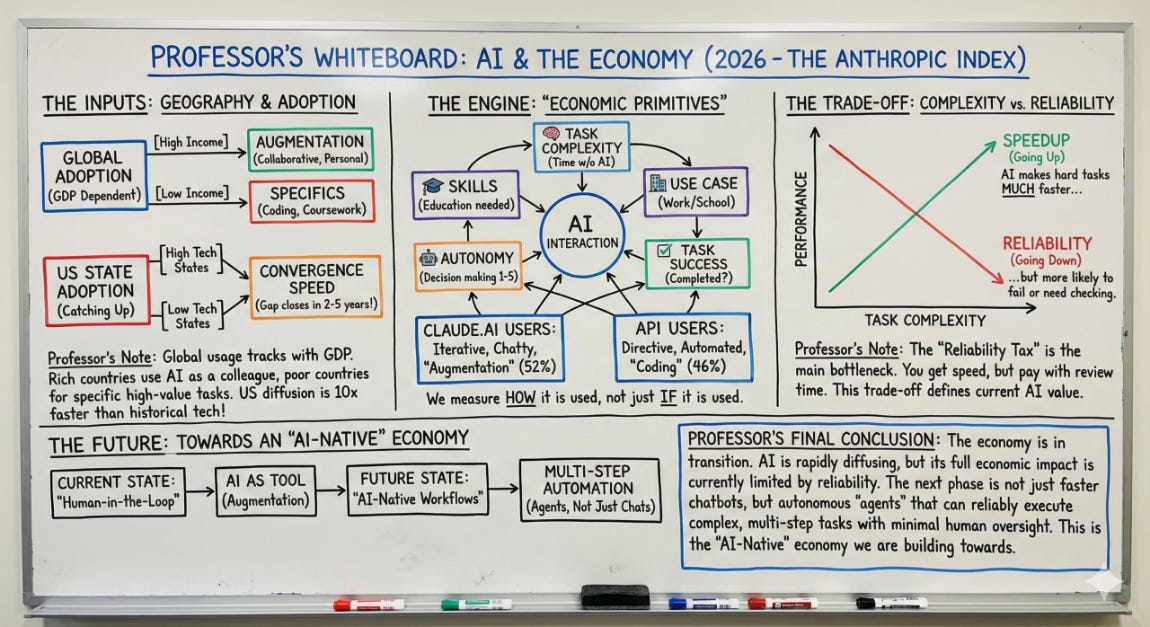 PROFESSOR'S WHITEBOARD: AI & THE ECONOMY (2026 – THE ANTHROPIC INDEX)
THE INPUTS: GEOGRAPHY & ADOPTION
GLOBAL
ADOPTION
(GDP Dependent)
[High Income]
AUGMENTATION
(Collaborative, Personal)
[Low Income]
SPECIFICS
(Coding, Coursework)
US STATE
ADOPTION
(Catching Up)
[High Tech
States]
[Low Tech
States]
CONVERGENCE
SPEED
(Gap closes in 2-5 years!)
Professor's Note: Global usage tracks with GDP.
Rich countries use AI as a colleague, poor countries
for specific high-value tasks. US diffusion is 10x
faster than historical tech!
THE ENGINE: "ECONOMIC PRIMITIVES"
TASK
COMPLEXITY
(Time w/o AI)
SKILLS
(Education needed)
USE CASE
(Work/School)
AI
INTERACTION
AUTONOMY
(Decision making 1-5)
TASK
SUCCESS
(Completed?)
CLAUDE.AI USERS:
Iterative, Chatty,
"Augmentation" (52%)
API USERS:
Directive, Automated,
"Coding" (46%)
We measure HOW it is used, not just IF it is used.
THE TRADE-OFF: COMPLEXITY vs. RELIABILITY
PERFORMANCE
SPEEDUP
(Going Up)
AI makes hard tasks
MUCH faster...
RELIABILITY
(Going Down)
...but more likely to
fail or need checking.
TASK COMPLEXITY
Professor's Note: The "Reliability Tax" is the
main bottleneck. You get speed, but pay with review
time. This trade-off defines current AI value.
THE FUTURE: TOWARDS AN "AI-NATIVE" ECONOMY
CURRENT STATE:
"Human-in-the-Loop"
AI AS TOOL
(Augmentation)
FUTURE STATE:
"AI-Native Workflows"
MULTI-STEP
AUTOMATION
(Agents, Not Just Chats)
PROFESSOR'S FINAL CONCLUSION: The economy is in
transition. AI is rapidly diffusing, but its full economic impact is
currently limited by reliability. The next phase is not just faster
chatbots, but autonomous "agents" that can reliably execute
complex, multi-step tasks with minimal human oversight. This is
the "AI-Native" economy we are building towards.